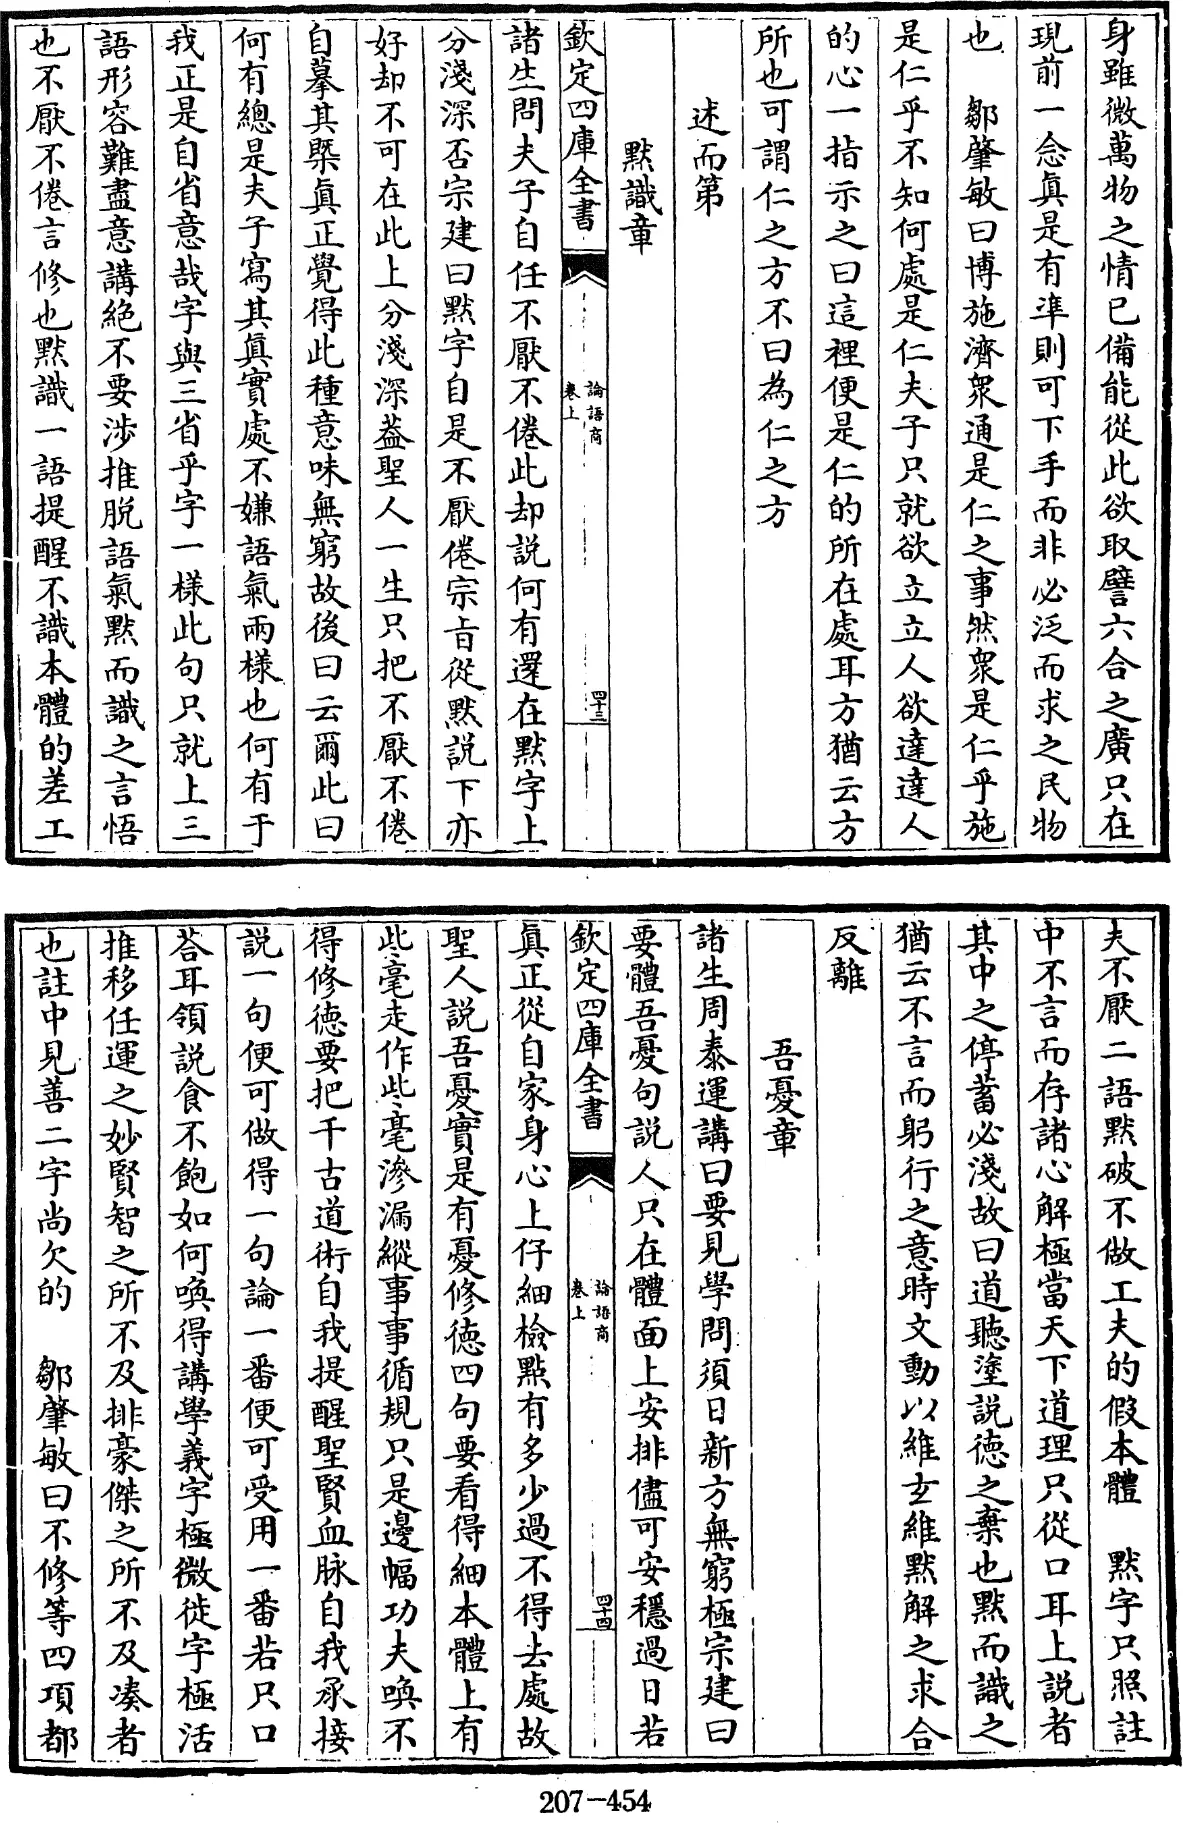 身雖微萬物之情已備能從此欲取譬六合之廣只在
現前一念眞是有準則可下手而非必泛而求之民物
也　鄒肇敏曰博施濟衆通是仁之事然衆是仁乎施
是仁乎不知何處是仁夫子只就欲立立人欲達達人
的心一指示之曰這裡便是仁的所在處耳方猶云方
所也可謂仁之方不曰為仁之方
述而第
默識章
欽定四庫全書
論語商
卷上
四十三
諸生問夫子自任不厭不倦此却説何有還在默字上
分淺深否宗建曰默字自是不厭倦宗㫖從默説下亦
好却不可在此上分淺深葢聖人一生只把不厭不倦
自摹其槩眞正覺得此種意味無窮故後曰云爾此曰
何有總是夫子寫其眞實處不嫌語氣兩様也何有于
我正是自省意哉字與三省乎字一様此句只就上三
語形容難盡意講絶不要渉推脱語氣默而識之言悟
也不厭不倦言修也默識一語提醒不識本體的差工
夫不厭二語默破不做工夫的假本體　默字只照註
中不言而存諸心解極當天下道理只從口耳上説者
其中之停蓄必淺故曰道聽塗説徳之棄也默而識之
猶云不言而躬行之意時文動以維玄維默解之求合
反離
吾憂章
諸生周泰運講曰要見學問須日新方無窮極宗建曰
要體吾憂句説人只在體面上安排儘可安穩過日若
欽定四庫全書
論語商
卷上
四十四
眞正從自家身心上仔細檢點有多少過不得去處故
聖人説吾憂實是有憂修徳四句要看得細本體上有
些毫走作些毫滲漏縱事事循規只是邊幅功夫喚不
得修徳要把千古道術自我提醒聖賢血脉自我承接
説一句便可做得一句論一番便可受用一番若只口
荅耳領説食不飽如何喚得講學義字極微徙字極活
推移任運之妙賢智之所不及排豪傑之所不及凑者
也註中見善二字尚欠的　鄒肇敏曰不修等四項都
207-454